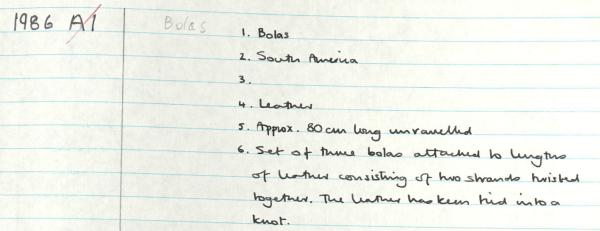 1986 A1
Bolas
1. Bolas
2. South America
3.
4. Leather
5. Approx. 80 cm long unravelled
6. Set of three bolas attached to lengths
of leather consisting of two strands twisted
together. The leather has been tied into a
knot.